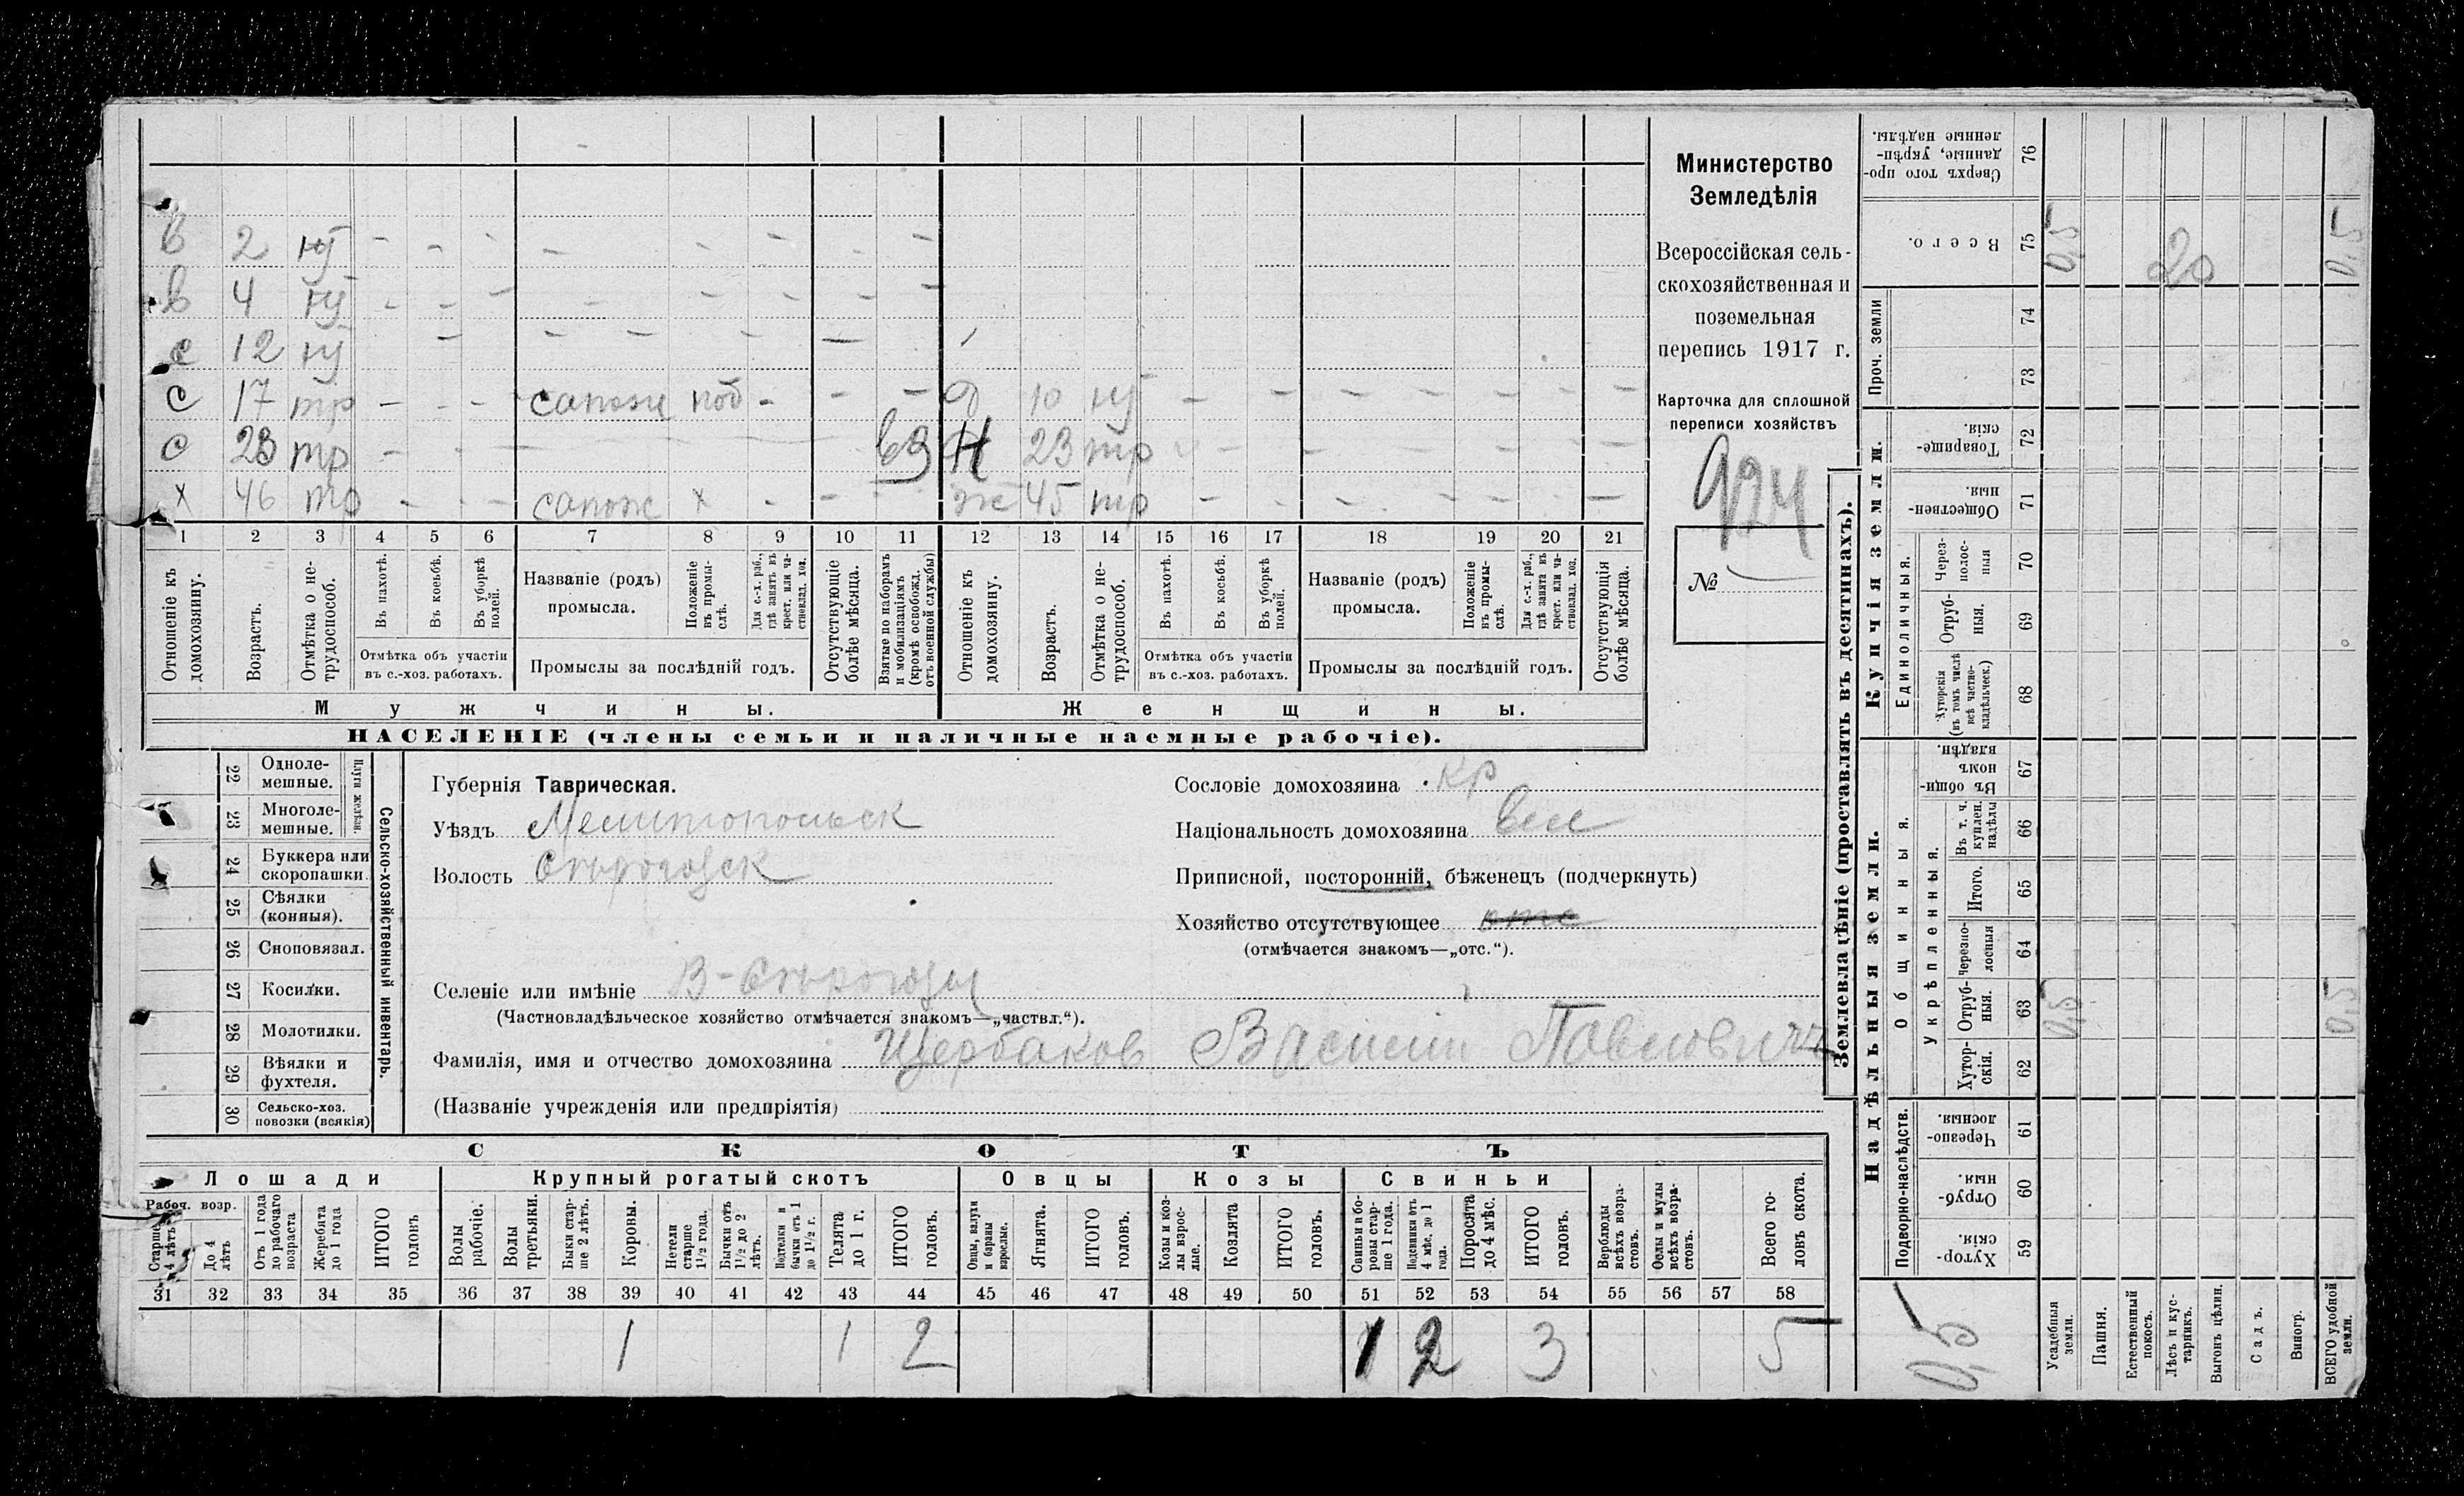 в 2 нт - - - - - - - - -
в 4 нт - - - - - - - - -
с 12 нт - - - - - -
с 17 тр - - - сапож поб - - - д 10 нт - - - - - - -
с 23 тр - - - вз Н 23 тр - - - - -
х 46 тр - - - сапож х - - ж 45 тр - - - - - - -
1 2 3 4 5 6 7 8 9 10 11 12 13 14 15 16 17 18 19 20 21
Отношеніе къ домохозяину.
Возрастъ.
Отмѣтка о не-трудоспособ.
Въ пахотѣ.
Въ косьбѣ.
Въ уборкѣ полей.
Отмѣтка объ участіи
въ с.-хоз. работахъ.
Названіе (родъ)
промысла.
Положеніе въ промы-слѣ.
Для с.-х. раб., гдѣ занятъ въ крест. или ча-стновлад. хоз.
Промыслы за послѣдній годъ.
Отсутствующіе болѣе мѣсяца.
Взятые по наборамъ и мобилизаціямъ (кромѣ освобожд. отъ военной службы)
Отношеніе къ домохозяину.
Возрастъ.
Отмѣтка о не-трудоспособ.
Въ пахотѣ.
Въ косьбѣ.
Въ уборкѣ полей.
Отмѣтка объ участіи
въ с.-хоз. работахъ.
Названіе (родъ)
промысла.
Положеніе въ промы-слѣ.
Для с.-х. раб., гдѣ занята въ крест. или ча-стновлад. хоз.
Промыслы за послѣдній годъ.
Отсутствующія болѣе мѣсяца.
Мужчины.
Женщины.
НАСЕЛЕНІЕ (члены семьи и наличные наемные рабочіе).
Министерство
Земледѣлія
Всероссійская сель-
скохозяйственная и
поземельная
перепись 1917 г.
Карточка для сплошной
переписи хозяйствъ
924
№
22 Одноле-мешные.
23 Многоле-мешные.
Плуги желѣзн.
24 Буккера или скоропашки.
25 Сѣялки (конныя).
26 Сноповязал.
27 Косилки.
28 Молотилки.
29 Вѣялки и фухтеля.
30 Сельско-хоз. повозки (всякія)
Сельско-хозяйственный инвентарь.
Губернія Таврическая.
Уѣздъ Мелитопольск
Волость Сѣрогозск
Селеніе или имѣніе В-Сѣрогозы
(Частновладѣльческое хозяйство отмѣчается знакомъ—„частвл.“).
Фамилія, имя и отчество домохозяина Щербаков Василий Павлович
(Названіе учрежденія или предпріятія)
Сословіе домохозяина кр
Національность домохозяина вел
Приписной, посторонній, бѣженецъ (подчеркнуть)
Хозяйство отсутствующее отс
(отмѣчается знакомъ—„отс.“).
СКОТЪ
Лошади
Крупный рогатый скотъ
Овцы
Козы
Свиньи
Рабоч. возр.
Старше 4 лѣтъ
До 4 лѣтъ
Отъ 1 года до рабочаго возраста
Жеребята до 1 года
ИТОГО головъ
Волы рабочіе.
Волы третьяки.
Быки стар-ше 2 лѣтъ.
Коровы.
Нетели старше 1½ года.
Бычки отъ 1½ до 2 лѣтъ.
Подтелки и бычки отъ 1 до 1½ г.
Телята до 1 г.
ИТОГО головъ.
Овцы, валухи и бараны взрослые.
Ягнята.
ИТОГО головъ.
Козы и коз-лы взрос-лые.
Козлята
ИТОГО головъ.
Свиньи и бо-ровы стар-ше 1 года.
Подсвинки отъ 4 мѣс. до 1 года.
Поросята до 4 мѣс.
ИТОГО головъ.
Верблюды всѣхъ возра-стовъ.
Ослы и мулы всѣхъ возра-стовъ.
Всего го-ловъ скота.
31 32 33 34 35 36 37 38 39 40 41 42 43 44 45 46 47 48 49 50 51 52 53 54 55 56 57 58
1 1 2 1 2 3 5
Землевладѣніе (проставлять въ десятинахъ).
Купчія земли.
Надѣльныя земли.
Сверхъ того про-данные, укрѣп-ленные надѣлы. 76
Всего. 75 0,5 20 0,5
Проч. земли
74
73
Товарище-скія. 72
Обществен-ныя. 71
Единоличныя.
Через-полос-ныя 70
Отруб-ныя. 69
Хуторскія (въ томъ числѣ всѣ частно-владѣльческ.) 68
Общинныя.
Въ общи-номъ владѣн. 67
Укрѣпленныя.
Въ т. ч. куплен. надѣлы 66
Итого. 65
Черезпо-лосныя 64
Отруб-ныя. 63 0,5 0,5
Хутор-скія. 62
Подворно-наслѣдств.
Черезпо-лосныя 61
Отруб-ныя. 60
Хутор-скія. 59
0,5
Усадебныя земли.
Пашня.
Естественный покосъ.
Лѣсъ и кус-тарникъ.
Выгонъ цѣлин.
Садъ.
Виногр.
ВСЕГО удобной земли.